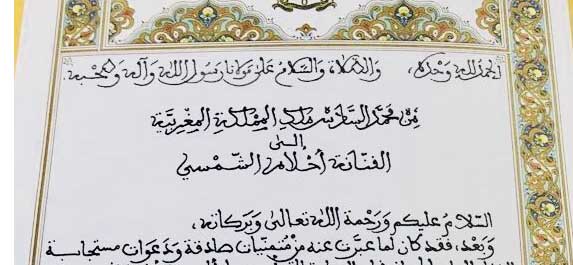 الحمد لله وحده، والصلاة والسلام على مولانا رسول الله وآله وصحبه.
من محمد السادس ملك المملكة المغربية
إلى
الفنانة أحلام الشمسي
السلام عليكم ورحمة الله تعالى وبركاته،
وبعد، فقد كان لما عبرت عنه من متمنيات صادقة ودعوات مستجابة